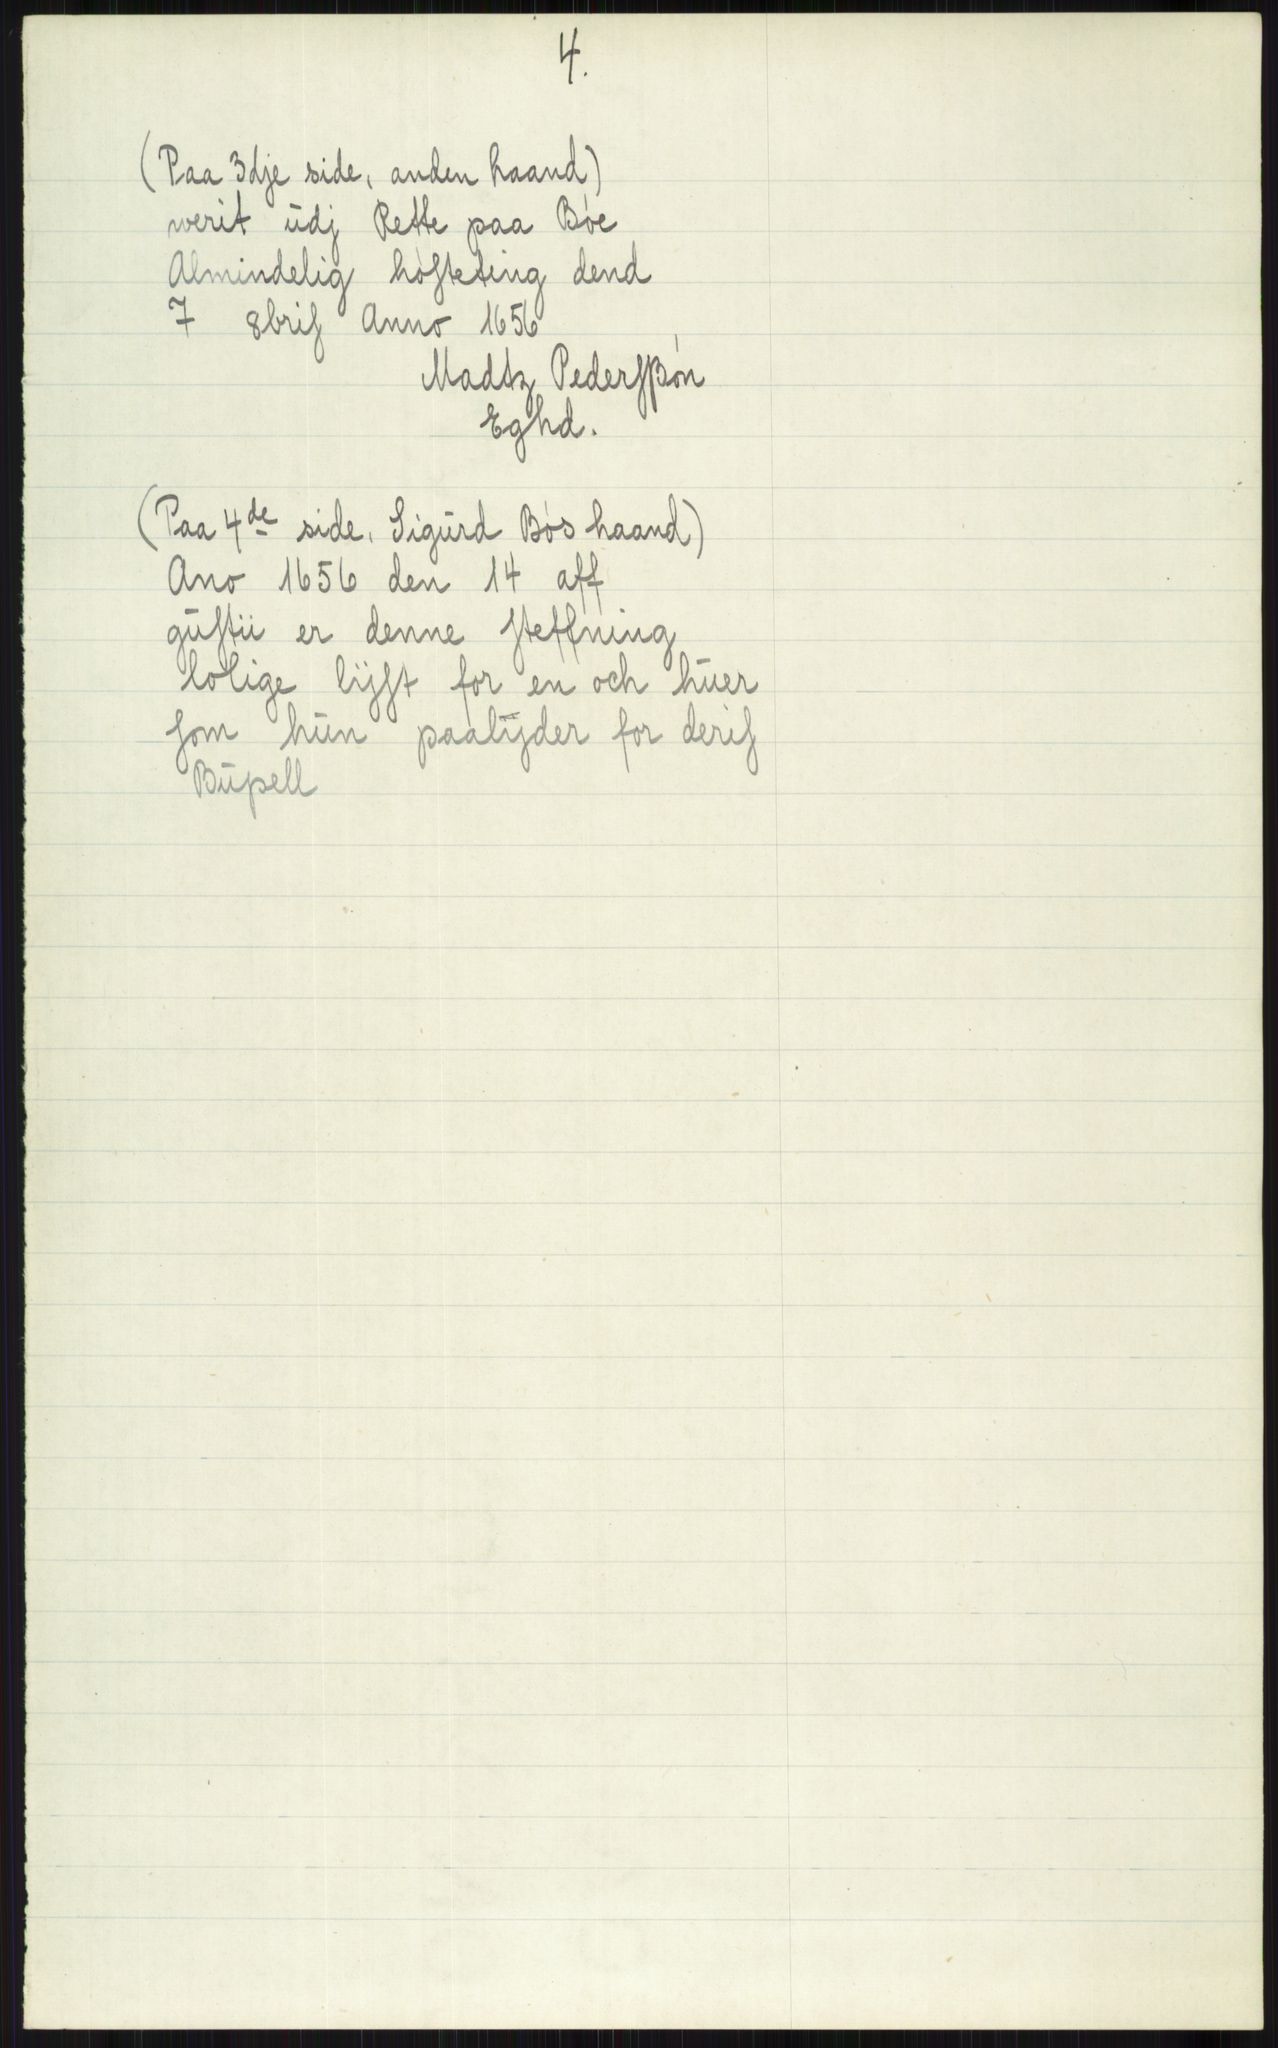 4.
(Paa 3dje side, anden haand)
werit ūdj Rette paa Bóe
Almindelig hósteting dend
7 8briſ Anno 1656
Madtz Pederſſßón
Eghd.
(Paa 4de side, Sigūrd Bós haand)
Ano 1656 den 14 aff
gūſtii er denne ſteffning
lolige lijſt for en och hūer
ſom hūn paalijder for deriſ
Būpell